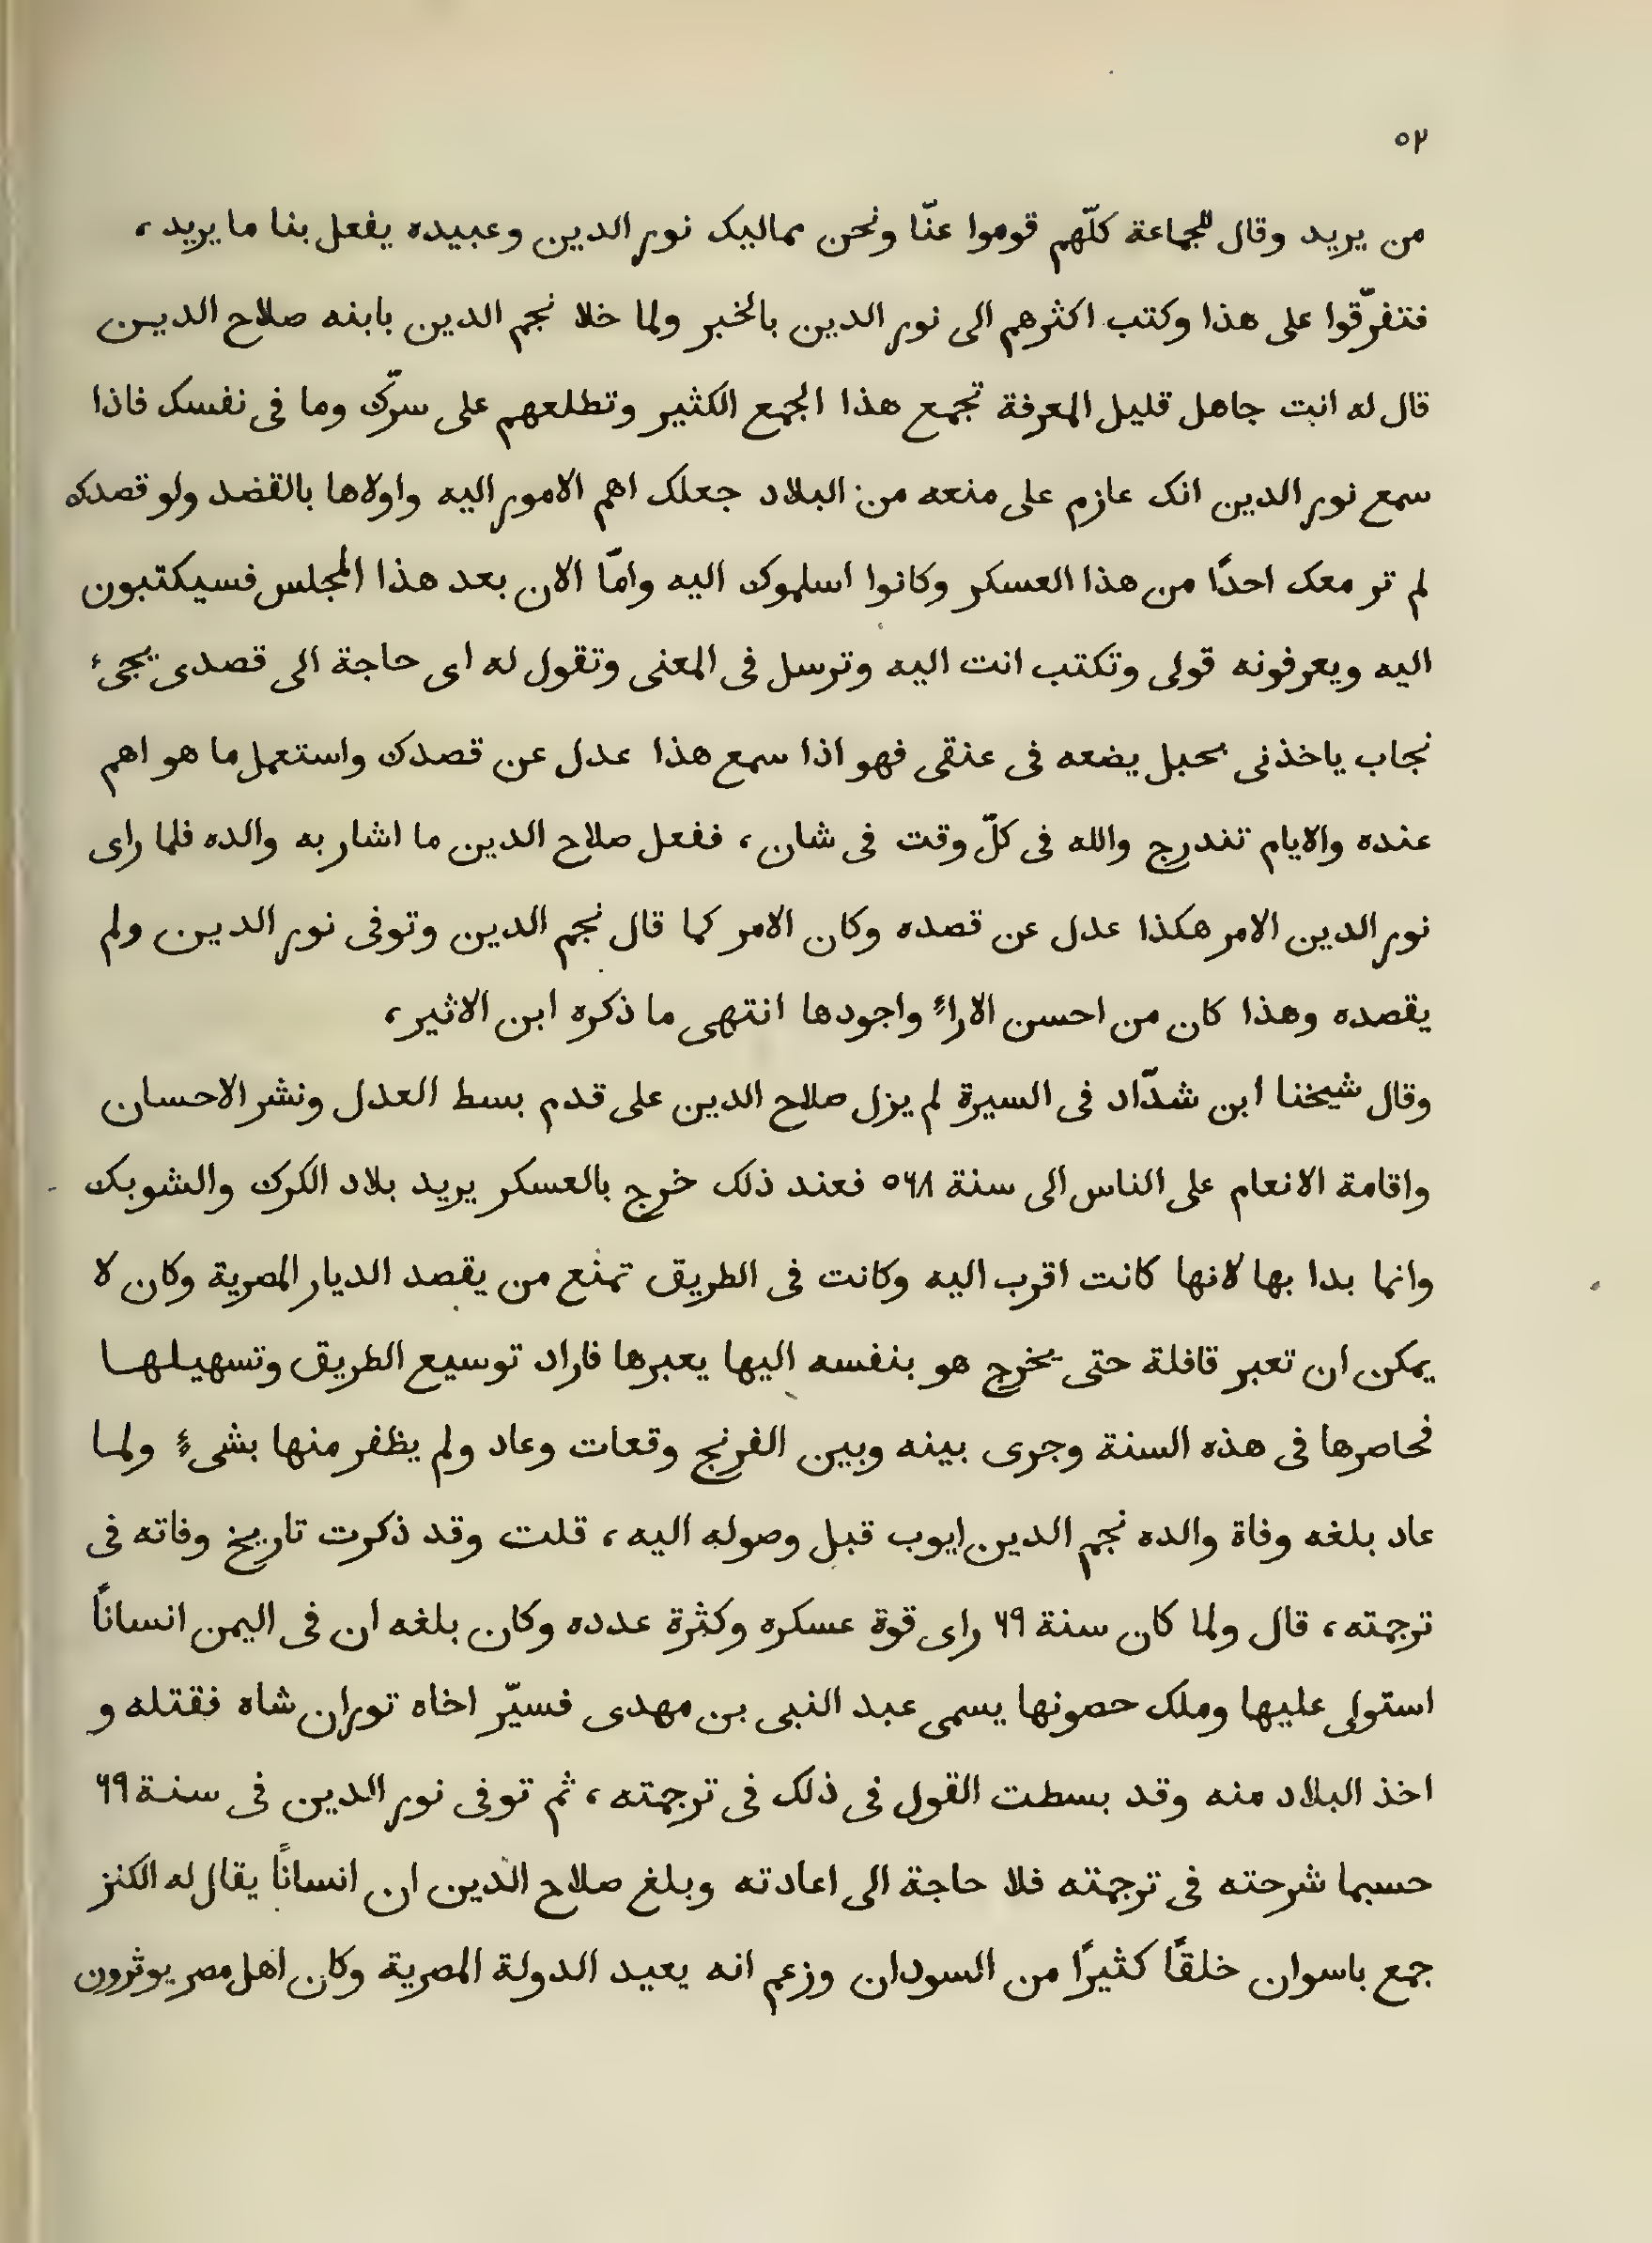 ٥٢
من يريد وقال للجماعة كلّهم قوموا عنّا ونحن مماليك نور الدين وعبيده يفعل بنا ما يريد ،
فتفرّقوا على هذا وكتب اكثرهم الى نور الدين بالخبر ولما خلا نجم الدين بابنه صلاح الدين
قال له انت جاهل قليل المعرفة تجمع هذا الجمع الكثير وتطلعهم على سرّك وما فى نفسك فاذا
سمع نور الدين انك عازم على منعه من البلاد جعلك اهم الامور اليه واولاها بالقضد ولو قصدك
لم تر معك احدًا من هذا العسكر وكانوا اسلموك اليه وامّا الان بعد هذا المجلس فسيكتبون
اليه ويعرفونه قولى وتكتب انت اليه وترسل فى المعنى وتقول له اى حاجة الى قصدى يجىء
نجاب ياخذنى بحبل يضعه فى عنقى فهو اذا سمع هذا عدل عن قصدك واستعمل ما هو اهم
عنده والايام تندرج والله فى كلّ وقت فى شان ، ففعل صلاح الدين ما اشار به والده فلما راى
نور الدين الامر هكذا عدل عن قصده وكان الامر كما قال نجم الدين وتوفى نور الدين ولم
يقصده وهذا كان من احسن الاراءِ واجودها انتهى ما ذكره ابن الاثير ،
وقال شيخنا ابن شدّاد فى السيرة لم يزل صلاح الدين على قدم بسط العدل ونشر الاحسان
واقامة الانعام على الناس الى سنة ٥٦٨ فعند ذلك خرج بالعسكر يريد بلاد الكرك والشوبك
وانما بدا بها لانها كانت اقرب اليه وكانت فى الطريق تمنع من يقصد الديار المصرية وكان لا
يمكن ان تعبر قافلة حتى يخرج هو بنفسه اليها يعبرها فاراد توسيع الطريق وتسهيلها
فحاصرها فى هذه السنة وجرى بينه وبين الفرنج وقعات وعاد ولم يظفر منها بشىءٍ ولما
عاد بلغه وفاة والده نجم الدين ايوب قبل وصوله اليه ، قلت وقد ذكرت تاريخ وفاته فى
ترجمته ، قال ولما كان سنة ٦٩ راى قوة عسكره وكثرة عدده وكان بلغه ان فى اليمن انسانًا
استولى عليها وملك حصونها يسمى عبد النبى بن مهدى فسيّر اخاه توران شاه فقتله و
اخذ البلاد منه وقد بسطت القول فى ذلك فى ترجمته ، ثم توفى نور الدين فى سنة ٦٩
حسبما شرحته فى ترجمته فلا حاجة الى اعادته وبلغ صلاح الدين ان انسانًا يقال له الكنز
جمع باسوان خلقًا كثيرًا من السودان وزعم انه يعيد الدولة المصرية وكان اهل مصر يوثرون